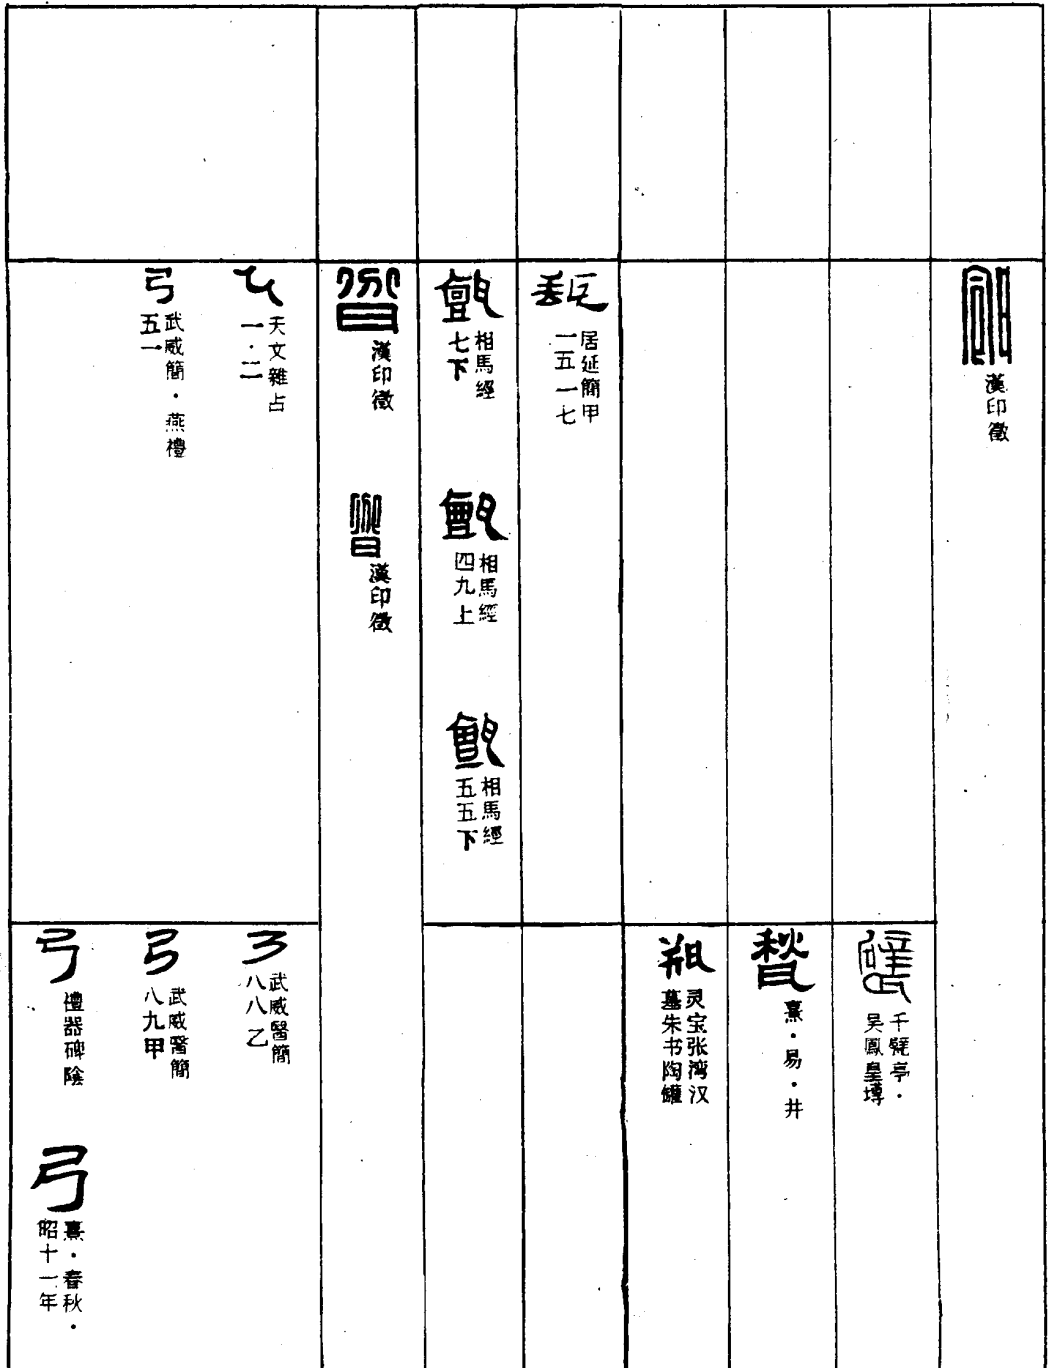 漢印徵
千甓亭·
吳鳳皇塼
熹·易·井
灵宝张湾汉
墓朱书陶罐
居延簡甲
一五一七
甑
相馬經
七下
甑
相馬經
四九上
甑
相馬經
五五下
漢印徵
漢印徵
天文雜占
一·二
弓
武威簡·燕禮
五一
武威醫簡
八八乙
弓
武威醫簡
八九甲
弓
禮器碑陰
弓
熹·春秋·
昭十一年